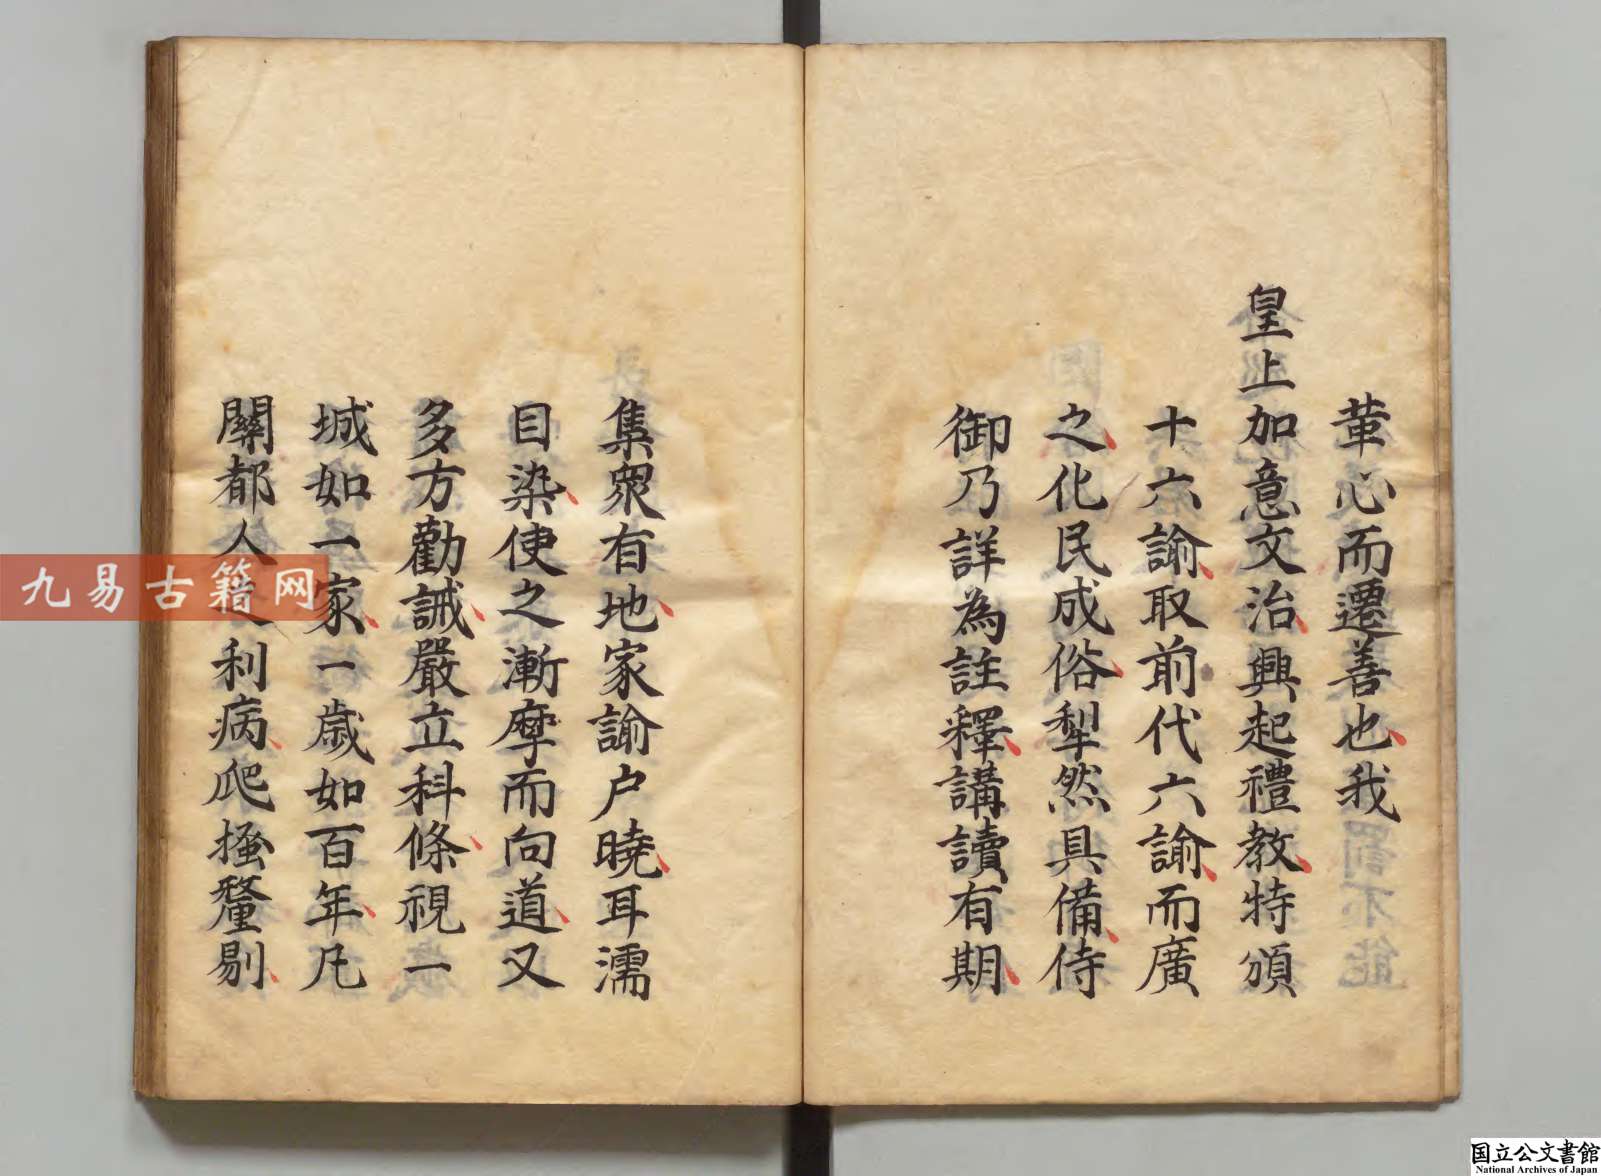 革心而遷善也我
皇上加意文治興起禮教特頒
十六諭取前代六諭而廣
之化民成俗犁然具備侍
御乃詳為註釋講讀有期
集眾有地家諭户曉耳濡
目染使之漸摩而向道又
多方勸誡嚴立科條視一
城如一家一歲如百年凡
關都人之利病爬搔釐剔
九易古籍网
国立公文書館
National Archives of Japan